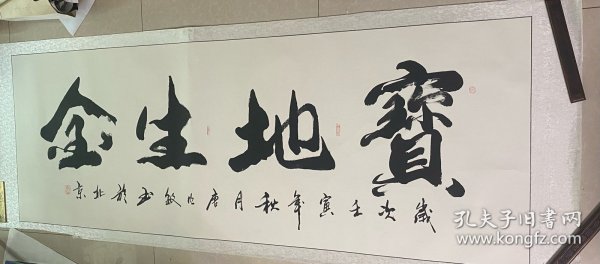 寶地生金
歲次壬寅年秋月唐敏书於北京
孔夫子旧书网
www.kongfz.com